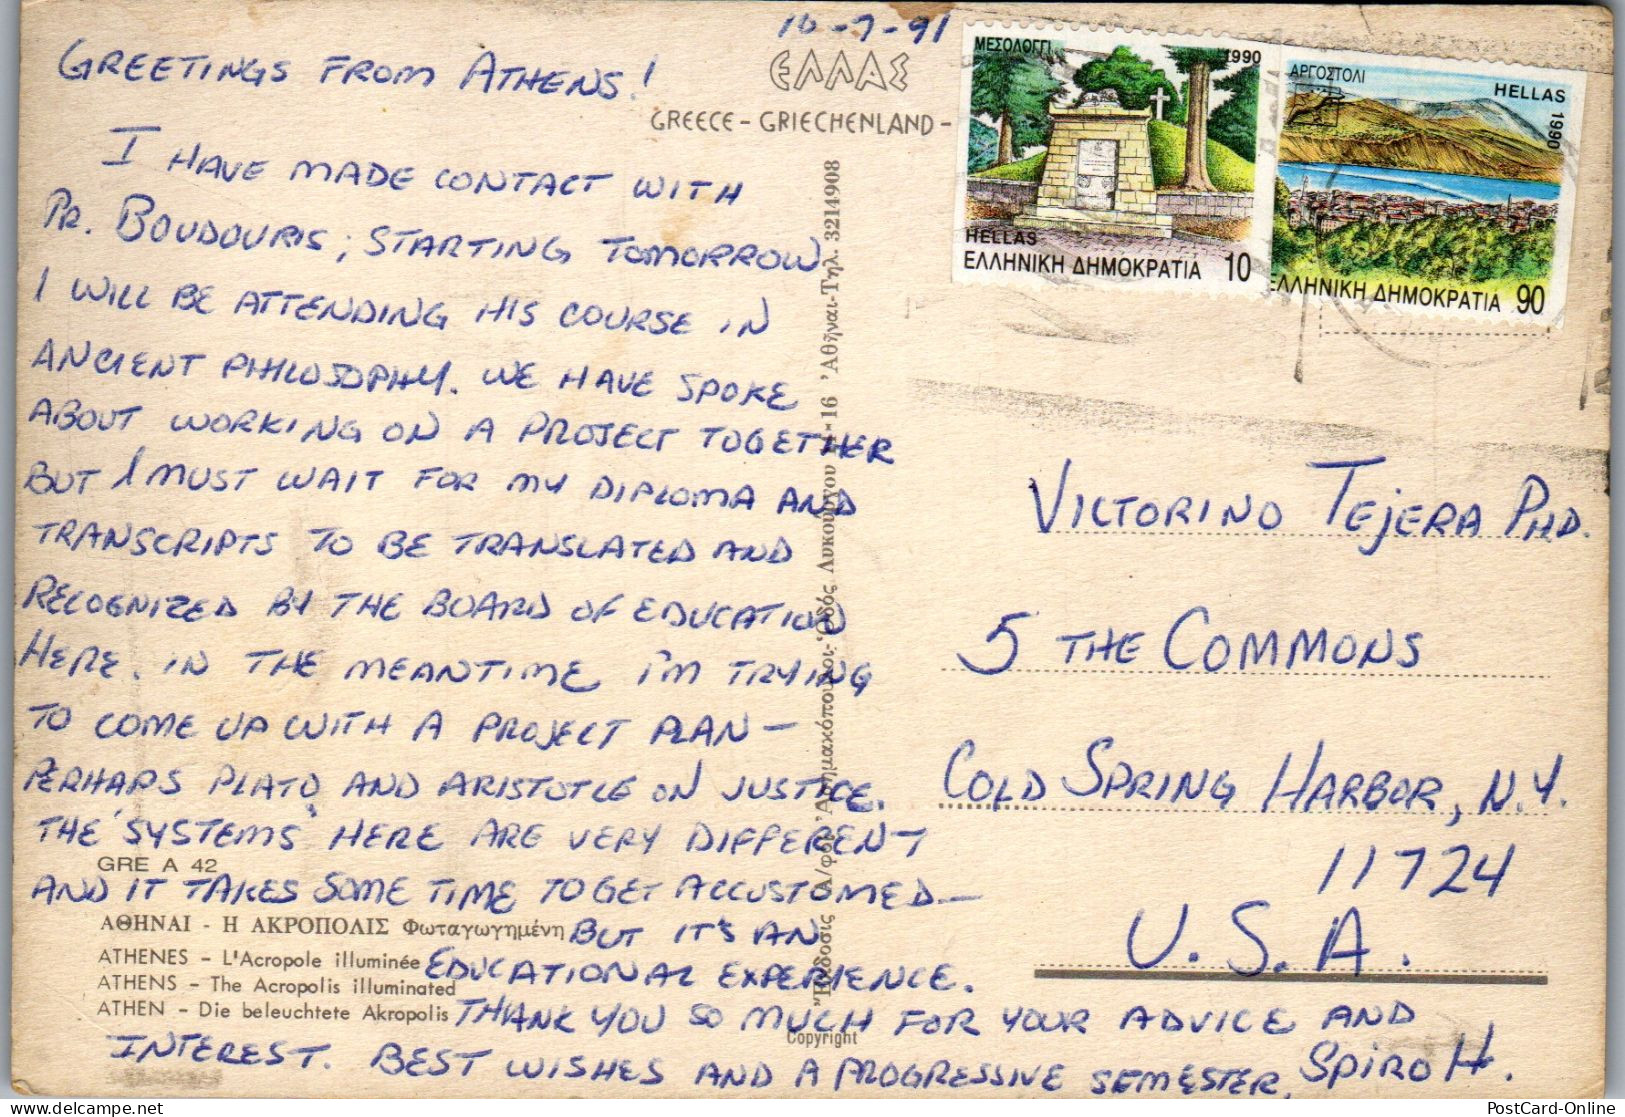 10-7-91
GREETINGS FROM ATHENS!
I HAVE MADE CONTACT WITH
PR. BOUDOURIS; STARTING TOMORROW
I WILL BE ATTENDING HIS COURSE IN
ANCIENT PHILOSOPHY. WE HAVE SPOKE
ABOUT WORKING ON A PROJECT TOGETHER
BUT I MUST WAIT FOR MY DIPLOMA AND
TRANSCRIPTS TO BE TRANSLATED AND
RECOGNIZED BY THE BOARD OF EDUCATION
HERE. IN THE MEANTIME I'M TRYING
TO COME UP WITH A PROJECT PLAN –
PERHAPS PLATO AND ARISTOTLE ON JUSTICE.
THE "SYSTEMS" HERE ARE VERY DIFFERENT
AND IT TAKES SOME TIME TO GET ACCUSTOMED –
BUT IT'S AN
EDUCATIONAL EXPERIENCE.
THANK YOU SO MUCH FOR YOUR ADVICE AND
INTEREST. BEST WISHES AND A PROGRESSIVE SEMESTER,
SPIRO H.
GRE A 42
ΑΘΗΝΑΙ - Η ΑΚΡΟΠΟΛΙΣ Φωταγωγημένη
ATHENES - L'Acropole illuminée
ATHENS - The Acropolis illuminated
ATHEN - Die beleuchtete Akropolis
ΕΛΛΑΣ
GREECE - GRIECHENLAND -
Ἔκδοσις Ἀ/φοι Ὁδός Λυκούργου 16 Ἀθῆναι-Τηλ. 3214908
Copyright
ΜΕΣΟΛΟΓΓΙ
1990
HELLAS
ΕΛΛΗΝΙΚΗ ΔΗΜΟΚΡΑΤΙΑ 10
ΑΡΓΟΣΤΟΛΙ
HELLAS
1990
ΕΛΛΗΝΙΚΗ ΔΗΜΟΚΡΑΤΙΑ 90
VICTORINO TEJERA PHD.
5 THE COMMONS
COLD SPRING HARBOR, N.Y.
11724
U.S.A.
PostCard-Online